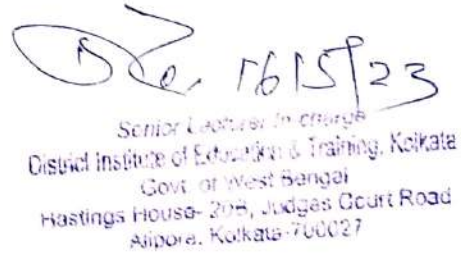 16/5/23
Senior Lecturer In-charge
District Institute of Education & Training, Kolkata
Govt. of West Bengal
Hastings House- 20B, Judges Court Road
Alipore, Kolkata-700027